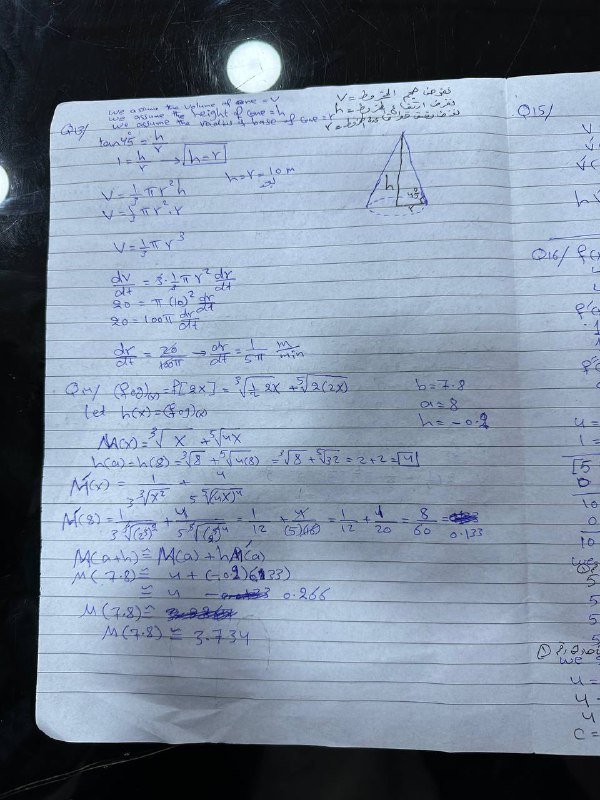 we assume the volume of cone = V
we assume the height of cone = h
we assume the radius is base of cone = r
نفرض حجم المخروط = V
نفرض ارتفاع المخروط = h
نفرض نصف قطر قاعدة المخروط = r
Q13/
tan45° = h/r
1 = h/r → h=r
h=r=10m
V = 1/3 π r² h
V = 1/3 π r² · r
V = 1/3 π r³
dV/dt = 3 · 1/3 π r² dr/dt
20 = π (10)² dr/dt
20 = 100π dr/dt
dr/dt = 20/100π → dr/dt = 1/5π m/min
h
45°
r
Q14/ (fog)(x) = f[2x] = ³√(1/2 2x) + ⁵√(2(2x))
let h(x) = (fog)(x)
b = 7.8
a = 8
h = -0.2
M(x) = ³√x + ⁵√4x
h(a) = h(8) = ³√8 + ⁵√4(8) = ³√8 + ⁵√32 = 2+2 = 4
M'(x) = 1/(3 ³√x²) + 4/(5 ⁵√(4x)⁴)
M'(8) = 1/(3 ³√(2³)²) + 4/(5 ⁵√(2⁵)⁴) = 1/12 + 4/(5)(16) = 1/12 + 1/20 = 8/60 = 0.133
M(a+h) ≅ M(a) + h M'(a)
M(7.8) ≅ 4 + (-0.2)(0.133)
≅ 4 - 0.266
M(7.8) ≅
M(7.8) ≅ 3.734
Q15/
V
V
V(
h
Q16/ f(x
f'(
f'(
4 =
1 =
[5
0
10
0.
10
5
5
5
we
4 =
4 -
4
c =